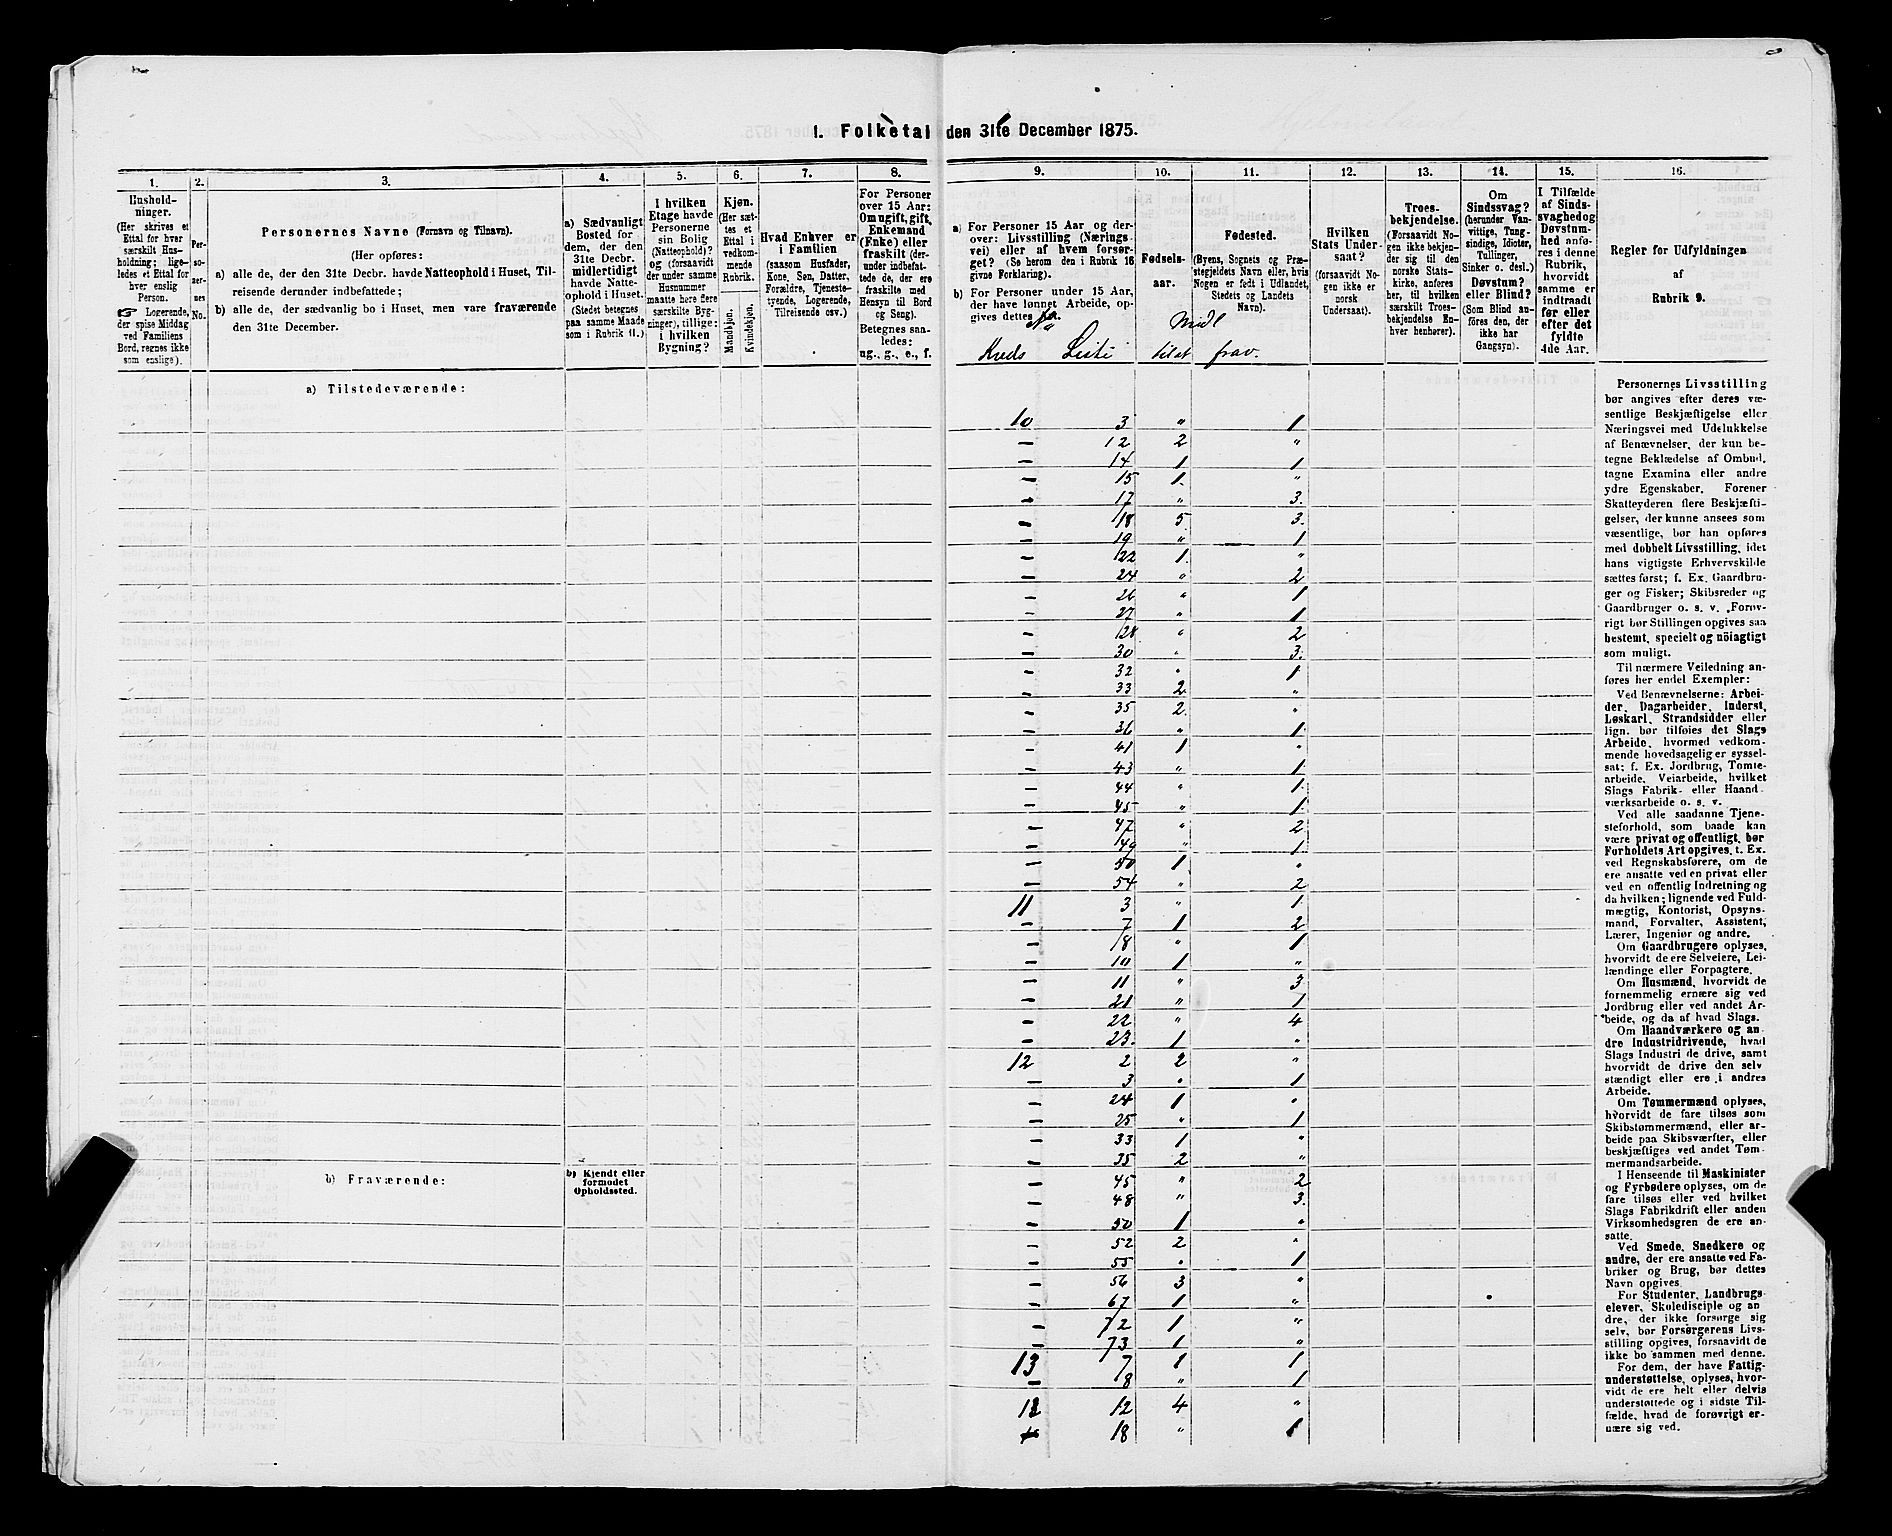 1. Folketal den 31te December 1875.
1. 2. 3. 4. 5. 6. 7. 8. 9. 10. 11. 12. 13. 14. 15. 16.
Husholdninger.
(Her skrives et
Ettal for hver
særskilt Husholdning;
ligeledes et Ettal for
hver enslig
Person.
☞ Logerende,
der spise Middag
ved Familiens
Bord, regnes ikke
som enslige).
Personernes
No.
Personernes Navne (Fornavn og Tilnavn).
(Her opføres:
a) alle de, der den 31te Decbr. havde Natteophold i Huset, Tilreisende
derunder indbefattede;
b) alle de, der sædvanlig bo i Huset, men vare fraværende
den 31te December.
a) Sædvanligt
Bosted for
dem, der den
31te Decbr.
midlertidigt
havde Natteophold
i Huset.
(Stedet betegnes
paa samme Maade
som i Rubrik 11.)
I hvilken
Etage havde
Personerne
sin Bolig
(Natteophold)?
og (forsaavidt
der under samme
Husnummer
maatte høre flere
særskilte Bygninger),
tillige:
i hvilken
Bygning?
Kjøn.
(Her sættes
et
Ettal i
vedkommende
Rubrik.
Mandkjøn.
Kvindekjøn.
Hvad Enhver er
i Familien
(saasom Husfader,
Kone, Søn, Datter,
Forældre, Tjenestetyende,
Logerende,
Tilreisende osv.)
For Personer
over 15 Aar:
Om ugift, gift,
Enkemand
(Enke) eller
fraskilt (derunder
indbefattede
de, der ere
fraskilte med
Hensyn til Bord
og Seng).
Betegnes saaledes:
ug., g., e., f.
a) For Personer 15 Aar og derover:
Livsstilling (Næringsvei)
eller af hvem forsørget?
(Se herom den i Rubrik 16
givne Forklaring).
b) For Personer under 15 Aar,
der have lønnet Arbeide, opgives
dettes
Fødselsaar.
Fødested.
(Byens, Sognets og Præstegjeldets
Navn eller, hvis
Nogen er født i Udlandet,
Stedets og Landets
Navn).
Hvilken
Stats Undersaat?
(forsaavidt Nogen
ikke er
norsk
Undersaat).
Troesbekjendelse.
(Forsaavidt Nogen
ikke bekjender
sig til den
norske Statskirke,
anføres
her, til hvilken
særskilt Troesbekjendelse
Enhver
henhører).
Om
Sindssvag?
(herunder Vanvittige,
Tungsindige,
Idioter,
Tullinger,
Sinker o. desl.)
Døvstum?
eller Blind?
(Som Blind anføres
den, der
ikke har
Gangsyn).
I Tilfælde
af Sindssvaghed
og
Døvstumhed
anføres
i denne
Rubrik,
hvorvidt
samme er
indtraadt
før eller
efter det
fyldte
4de Aar.
Regler for Udfyldningen
af
Rubrik 9.
Midl
Kreds Liste tilst frav.
a) Tilstedeværende:
10 3 " 1
— 12 2 "
— 14 1 1
— 15 1. "
— 17 " 3.
— 18 5 3.
— 19 " 1
— 22 1. "
— 24 " 2
— 26 " 1
— 27 " 1
— 28 " 2
— 30 " 3.
— 32 " 1
— 33 2 "
— 35 2. "
— 36 " 1
— 41 1 "
— 43 " 1.
— 44 " 1.
— 45 " 1.
— 47 " 2
— 49 " 1
— 50 1 "
— 54 " 2
11 3 " 1
— 7 1 2
— 8 " 1
— 10 1 "
— 11 " 3
— 21 " 1
— 22 " 4
— 23. 1 "
12 2 2 "
— 3 " 1
— 24 1 "
— 25 " 1
— 33 1 "
— 35 2 "
b) Fraværende:
b) Kjendt eller
formodet
Opholdssted.
— 45 " 2
— 48 " 3.
— 50 1 "
— 52 2 "
— 55 " 1
— 56 3 "
— 67 1 "
— 72 1 "
— 73 1 "
13 7 1 1
— 8 " 1
12 4 "
18 " 1
Personernes Livsstilling
bør angives efter deres væsentlige
Beskjæftigelse eller
Næringsvei med Udelukkelse
af Benævnelser, der kun betegne
Beklædelse af Ombud,
tagne Examina eller andre
ydre Egenskaber. Forener
Skatteyderen flere Beskjæftigelser,
der kunne ansees som
væsentlige, bør han opføres
med dobbelt Livsstilling, idet
hans vigtigste Erhvervskilde
sættes først; f. Ex. Gaardbruger
og Fisker; Skibsreder og
Gaardbruger o. s. v. Forøvrigt
bør Stillingen opgives saa
bestemt, specielt og nöiagtigt
som muligt.
Til nærmere Veiledning anføres
her endel Exempler:
Ved Benævnelserne: Arbeider,
Dagarbeider, Inderst,
Løskarl, Strandsidder eller
lign. bør tilføies det Slags
Arbeide, hvormed vedkommende
hovedsagelig er sysselsat;
f. Ex. Jordbrug, Tomtearbeide,
Veiarbeide, hvilket
Slags Fabrik- eller Haandværksarbeide
o. s. v.
Ved alle saadanne Tjenesteforhold,
som baade kan
være privat og offentligt, bør
Forholdets Art opgives, t. Ex.
ved Regnskabsførere, om de
ere ansatte ved en privat eller
ved en offentlig Indretning og
da hvilken; lignende ved Fuldmægtig,
Kontorist, Opsynsmand,
Forvalter, Assistent,
Lærer, Ingeniør og andre.
Om Gaardbrugere oplyses,
hvorvidt de ere Selveiere, Leilændinge
eller Forpagtere.
Om Husmænd, hvorvidt de
fornemmelig ernære sig ved
Jordbrug eller ved andet Arbeide,
og da af hvad Slags.
Om Haandværkere og andre
Industridrivende, hvad
Slags Industri de drive, samt
hvorvidt de drive den selvstændigt
eller ere i andres
Arbeide.
Om Tømmermænd oplyses,
hvorvidt de fare tilsøs som
Skibstømmermænd, eller arbeide
paa Skibsværfter, eller
beskjæftiges ved andet Tømmermandsarbeide.
I Henseende til Maskinister
og Fyrbødere oplyses, om de
fare tilsøs eller ved hvilket
Slags Fabrikdrift eller anden
Virksomhedsgren de ere ansatte.
Ved Smede, Snedkere og
andre, der ere ansatte ved Fabriker
og Brug, bør dettes
Navn opgives.
For Studenter, Landbrugselever,
Skoledisciple og andre,
der ikke forsørge sig
selv, bør Forsørgerens Livsstilling
opgives, forsaavidt de
ikke bo sammen med denne.
For dem, der have Fattigunderstøttelse,
oplyses, hvorvidt
de ere helt eller delvis
understøttede og i sidste Tilfælde,
hvad de forøvrigt ernære
sig ved.